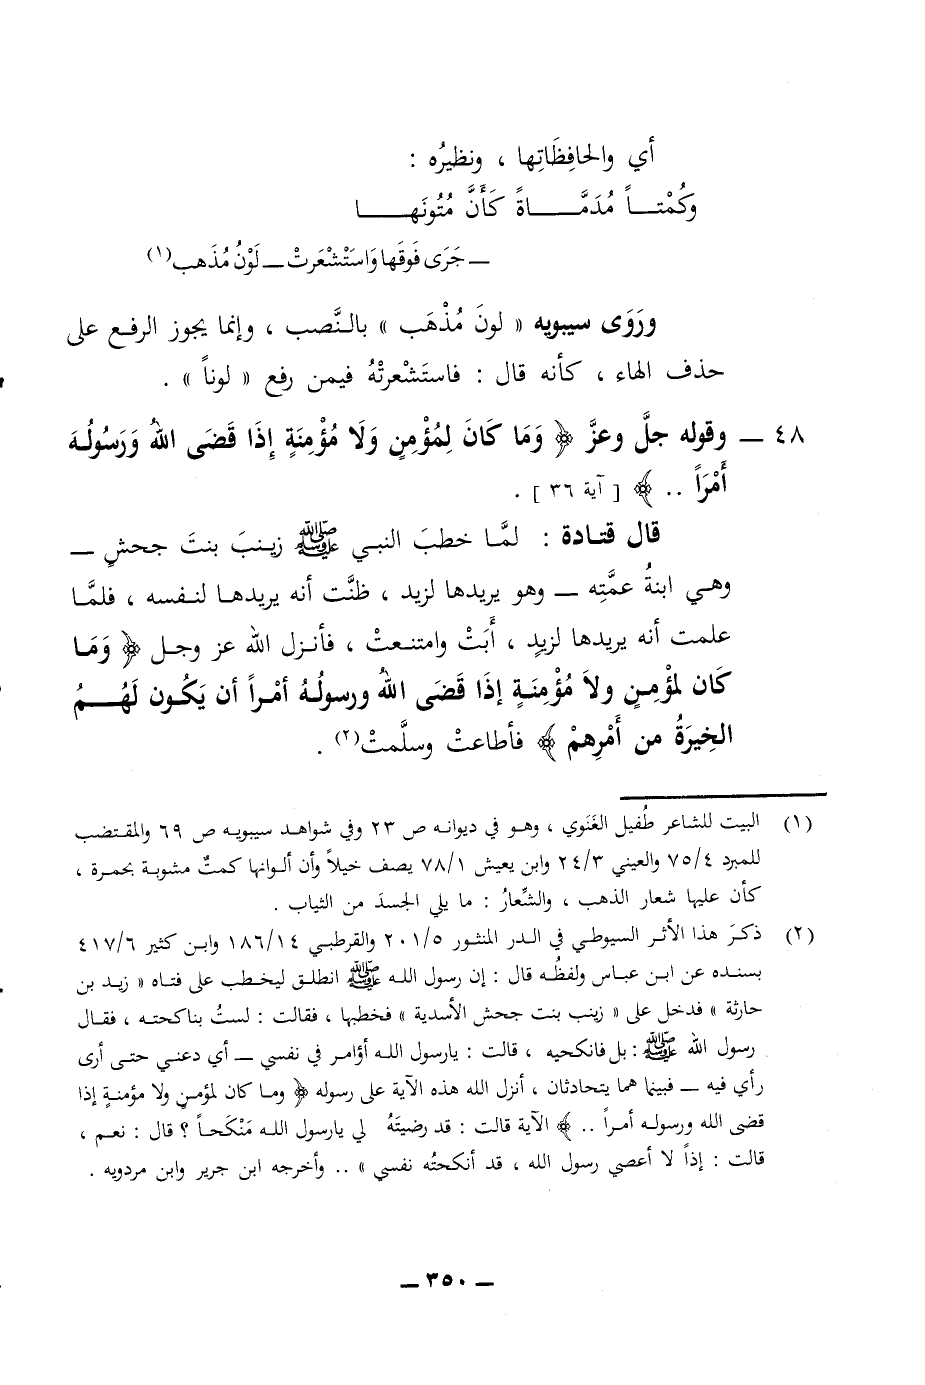 أي والحافِظَاتِها ، ونظيرُه :
وكُمْتــاً مُدَمَّــــاةً كَأَنَّ مُتُونَهــــا
ــ جَرَى فَوقَها وَاسْتَشْعَرتْ ــ لَوْنُ مُذْهب(١)
ورَوَى سيبويه « لونَ مُذْهَب » بالنَّصب ، وإنما يجوز الرفع على
حذف الهاء ، كأنه قال : فاستَشْعرتْهُ فيمن رفع « لوناً » .
٤٨ ــ وقوله جلَّ وعزَّ ﴿ وَمَا كَانَ لِمُؤْمِنٍ وَلَا مُؤْمِنَةٍ إِذَا قَضَى اللهُ وَرَسُولُهُ
أَمْرَاً .. ﴾ [ آية ٣٦ ] .
قال قتادة : لمَّا خطبَ النبي ﷺ زينبَ بنتَ جحشٍ ــ
وهي ابنةُ عمَّتِه ــ وهو يريدها لزيد ، ظنَّت أنه يريدها لنفسه ، فلمَّا
علمت أنه يريدها لزيدٍ ، أَبَتْ وامتنعتْ ، فأنزل الله عز وجل ﴿ وَمَا
كَان لمُؤْمِنٍ ولاَ مُؤْمِنَةٍ إذَا قَضَى اللهُ ورسولُهُ أمْراً أن يَكُون لَهُــمُ
الخِيرَةُ من أَمْرِهِمْ ﴾ فأطاعتْ وسلَّمتْ(٢) .
(١) البيت للشاعر طُفيل الغَنَوي ، وهو في ديوانه ص ٢٣ وفي شواهد سيبويه ص ٦٩ والمقتضب
للمبرد ٧٥/٤ والعيني ٢٤/٣ وابن يعيش ٧٨/١ يصف خيلاً وأن ألوانها كمتٌ مشوبة بحمرة ،
كأن عليها شعار الذهب ، والشِّعارُ : ما يلي الجسدَ من الثياب .
(٢) ذكرَ هذا الأثر السيوطي في الدر المنثور ٢٠١/٥ والقرطبي ١٨٦/١٤ وابن كثير ٤١٧/٦
بسنده عن ابن عباس ولفظُه قال : إن رسول الله ﷺ انطلق ليخطب على فتاه « زيد بن
حارثة » فدخل على « زينب بنت جحش الأسدية » فخطبها ، فقالت : لستُ بناكحته ، فقال
رسول الله ﷺ : بل فانكحيه ، قالت : يارسول الله أؤامر في نفسي ــ أي دعني حتى أرى
رأي فيه ــ فبينما هما يتحادثان ، أنزل الله هذه الآية على رسوله ﴿ وما كان لمؤمنٍ ولا مؤمنةٍ إذا
قضى الله ورسوله أمراً .. ﴾ الآية قالت : قد رضيتَهُ لي يارسول الله مَنْكَحاً ؟ قال : نعم ،
قالت : إذاً لا أعصي رسول الله ، قد أنكحتُه نفسي » .. وأخرجه ابن جرير وابن مردويه .
ــ ٣٥٠ ــ